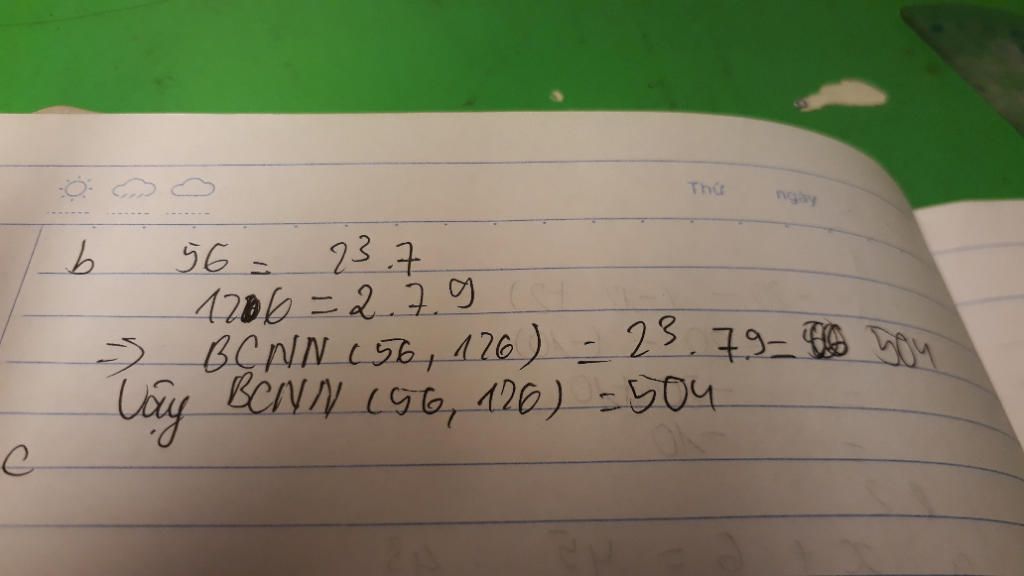 Thứ ngày
b 56 = 2³.7
126 = 2.7.9
=> BCNN (56, 126) = 2³.7.9 = 504
Vậy BCNN (56, 126) = 504
c